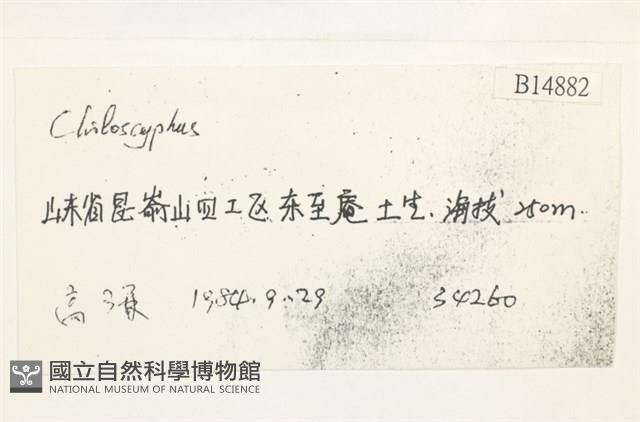 B14882
Chiloscyphus
山东省昆嵛山 工区 东至庵 土生. 海拔 250m.
高 1984.9.29 34260
國立自然科學博物館
NATIONAL MUSEUM OF NATURAL SCIENCE